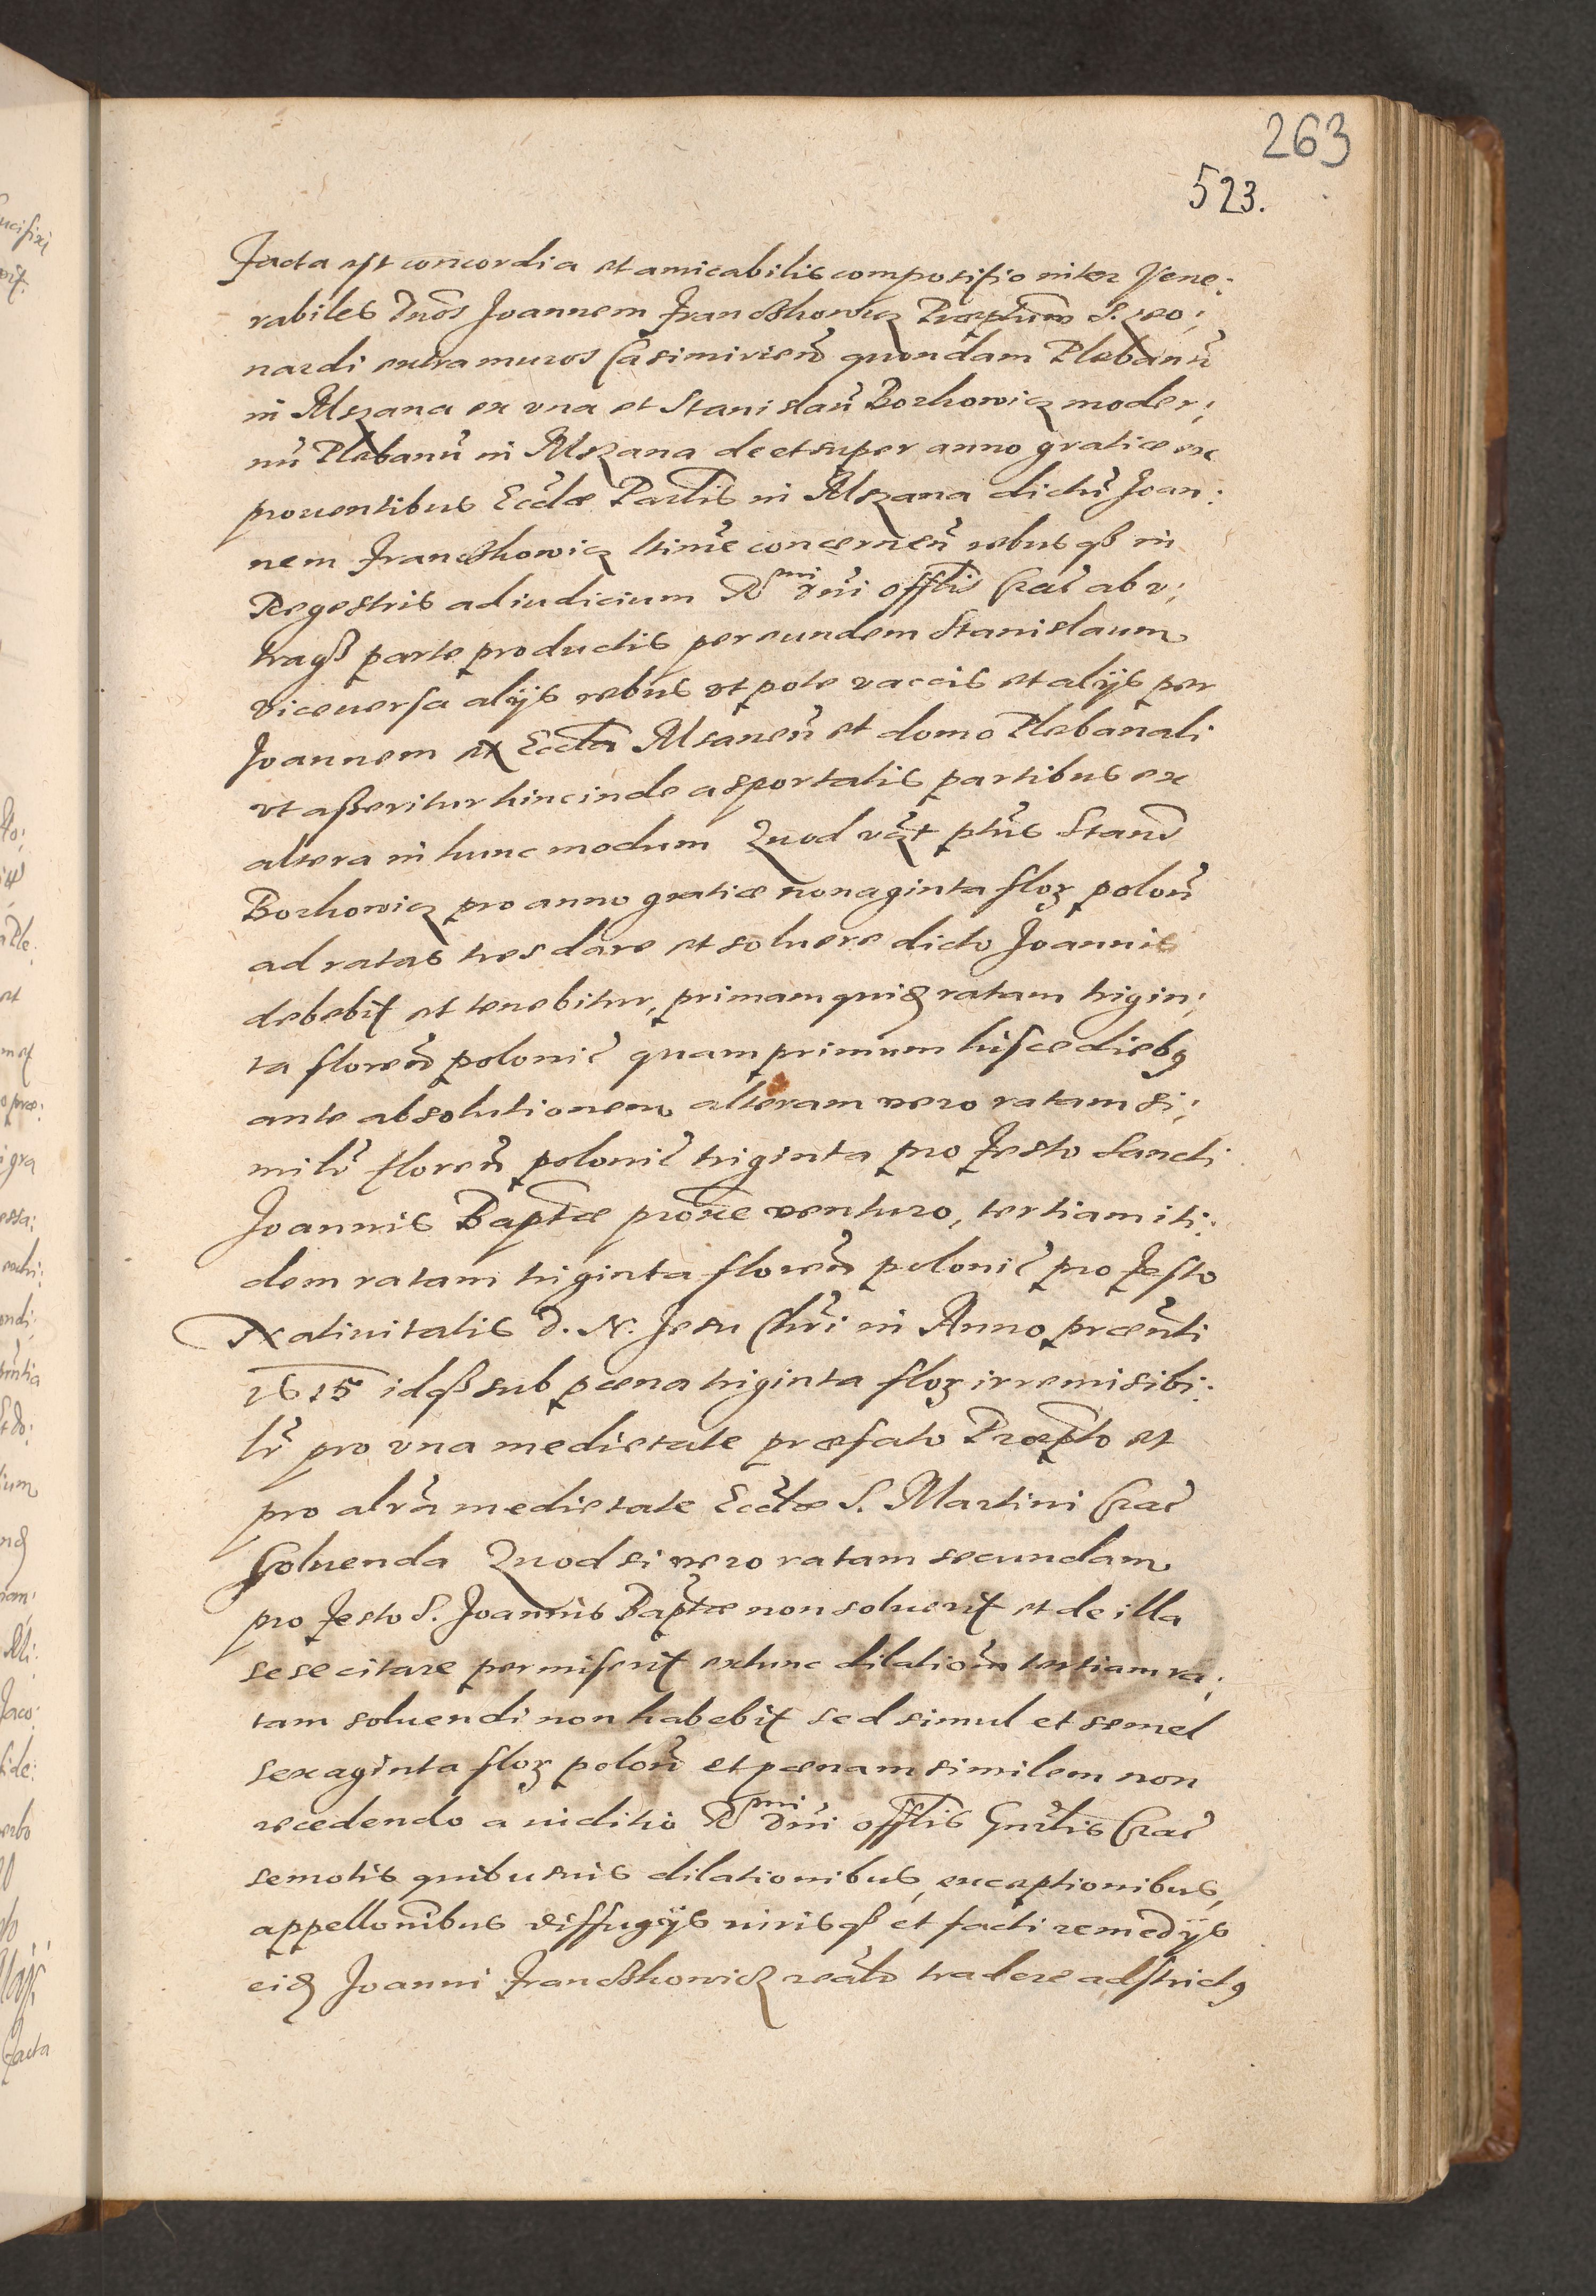 263
523.
Facta est concordia et amicabilis compositio inter Vene:
rabiles Dnos Joannem Franckowicz Præptum S. Leo:
nardi extra muros Casimirien quondam Plebanũ
in Mszana ex una et Stanislaũ Borkowicz moder:
nũ Plebanũ in Mszana de et super anno gratiæ ex
prouentibus Ecclæ Parlis in Mszana dictũ Joan:
nem Franckowicz ltime concernen̄ rebusqȝ in
Regestris ad iudicium Rmi Dni Offlis Crac ab v:
traqȝ parte productis per eundem Stanislaum
viceuersa alijs rebus vt pote vaccis et alijs per
Joannem ex Eccla Msanen̄ et domo Plebanali
vt asseritur hincinde asportatis partibus ex
altera in hunc modum Quod vȝt pttus Stans
Borkowicz pro anno gratiæ nonaginta flor polon̄
ad ratas tres dare et soluere dicto Joanni
debebit et tenebitur, primam quidȝ ratam trigin:
ta floren̄ polonic quamprimum hisce diebꝰ
ante absolutionem alteram vero ratam si:
milr floren̄ polonic triginta pro festo Sancti
Joannis Baptæ proxe venturo, tertiam iti:
dem ratam triginta floren̄ polonic pro festo
Natiuitatis D. N. Jesu Chri in Anno præn̄ti
1615 idqȝ sub pœna triginta flor irremisibi:
lr pro vna medietate præfato Præpto et
pro altra medietate Ecclæ S. Martini Crac
soluenda Quod si vero ratam secundam
pro festo S. Joannis Baptæ non soluerit et de illa
sese citare permiserit extunc dilatiõm tertiam ra:
tam soluendi non habebit sed simul et semel
sexaginta flor polon̄ et pœnam similem non
recedendo a iuditio Rmi Dni Offlis Gnrlis Crac
semotis quibusuis dilationibus, exceptionibus,
appellõnibus diffugijs iurisqȝ et facti remedijs
eidȝ Joanni Franckowicz realr tradere adstrictꝰ